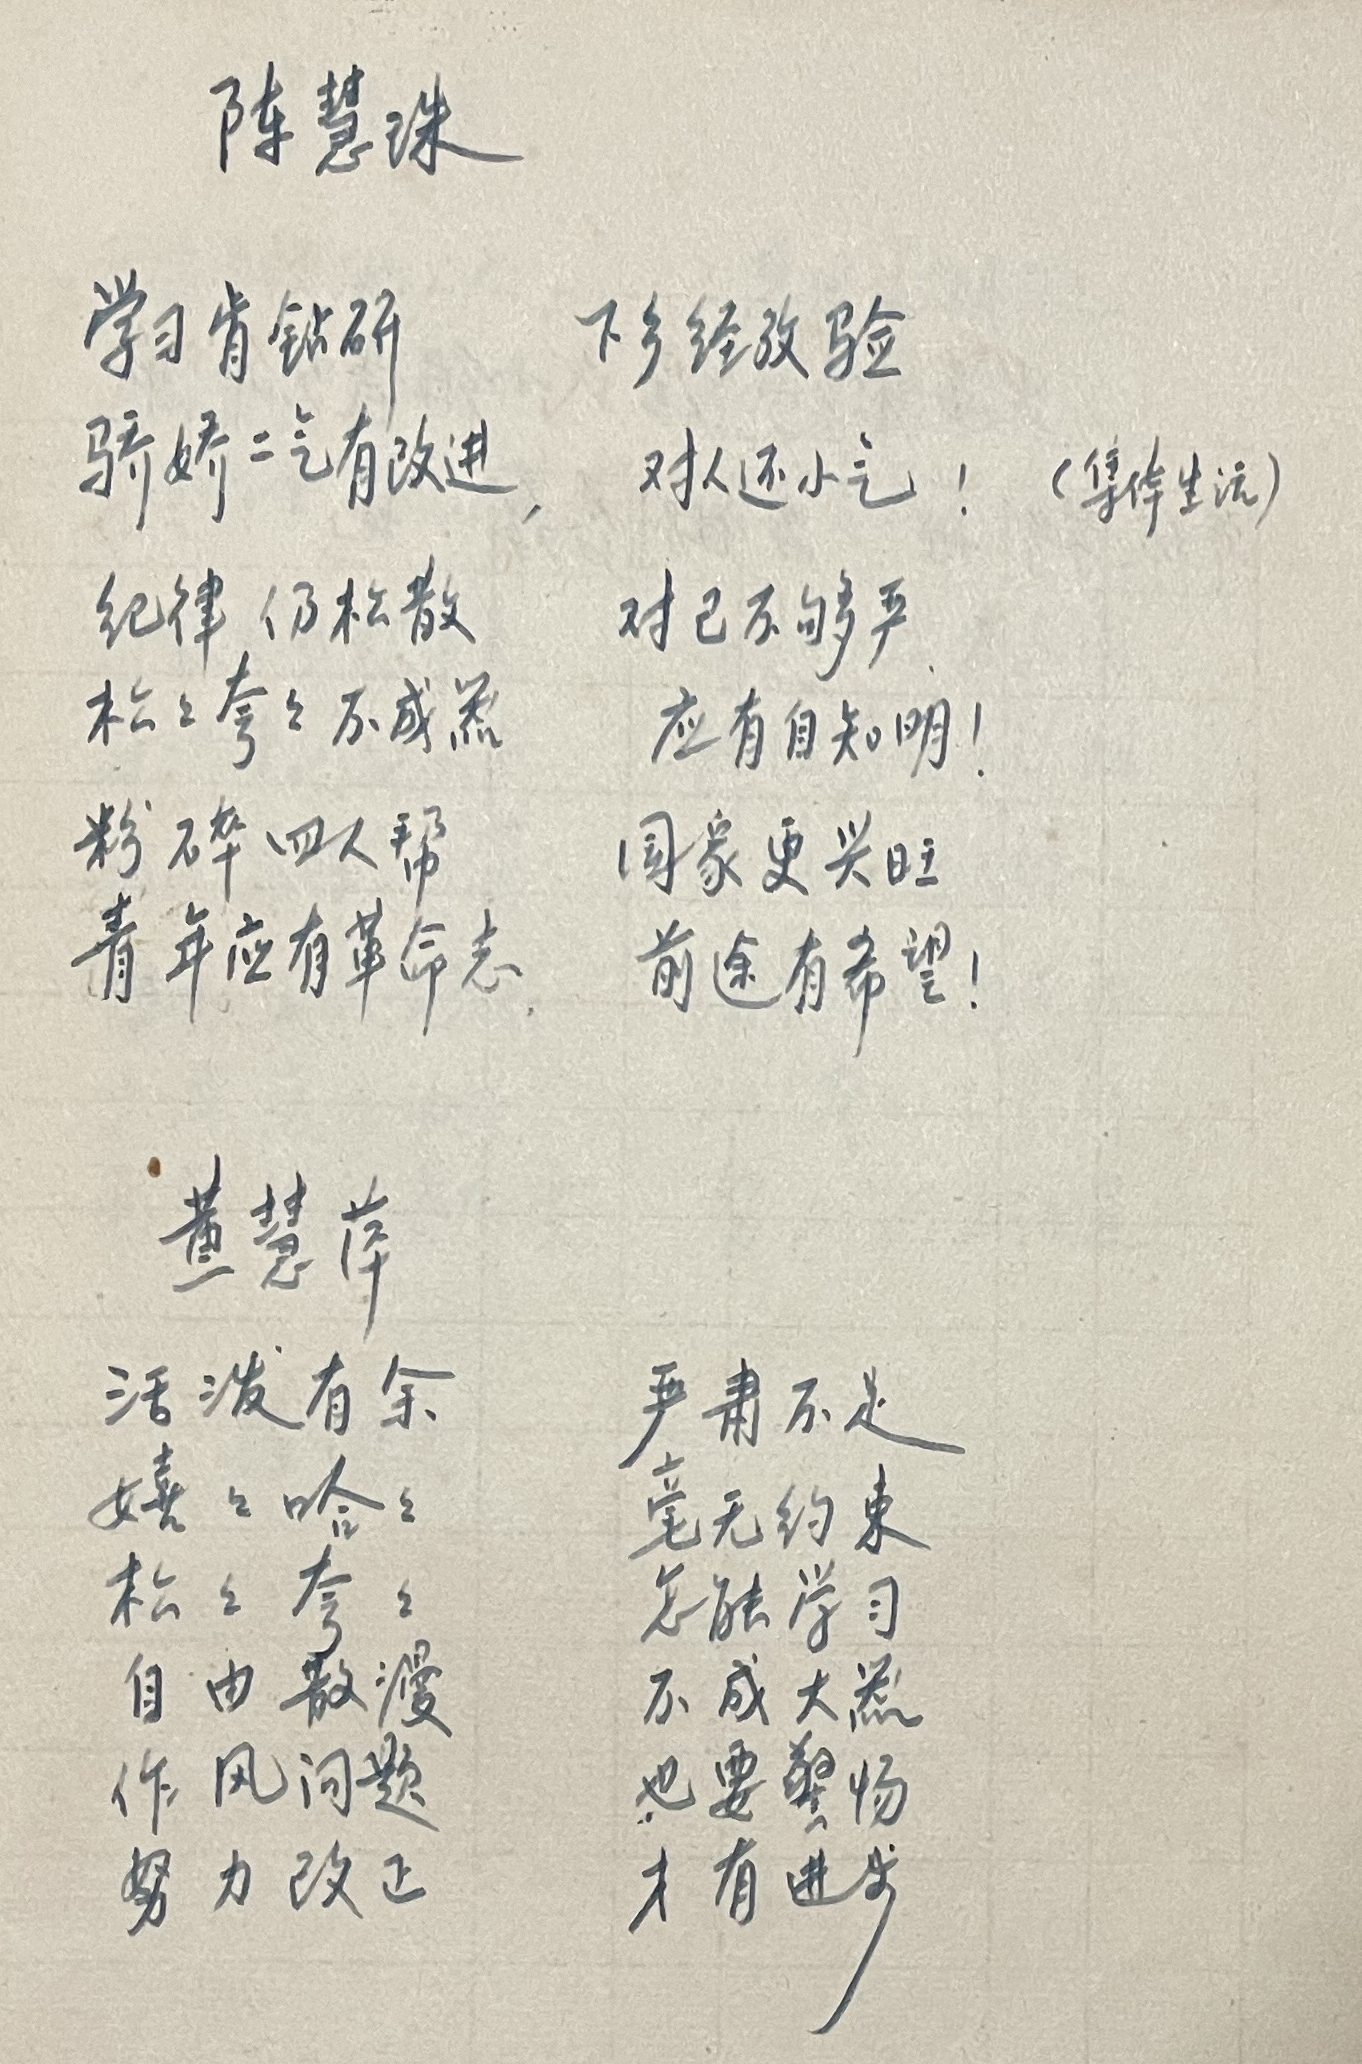 陈慧珠
学习肯钻研 下乡经考验
骄娇二气有改进, 对人还小气! (集体生活)
纪律仍松散 对己不够严
松々夸々不成器 应有自知明!
粉碎四人帮 国家更兴旺
青年应有革命志. 前途有希望!
黄慧萍
活泼有余 严肃不足
嬉々哈々 毫无约束
松々夸々 怎能学习
自由散漫 不成大器
作风问题 也要警惕
努力改正 才有进步